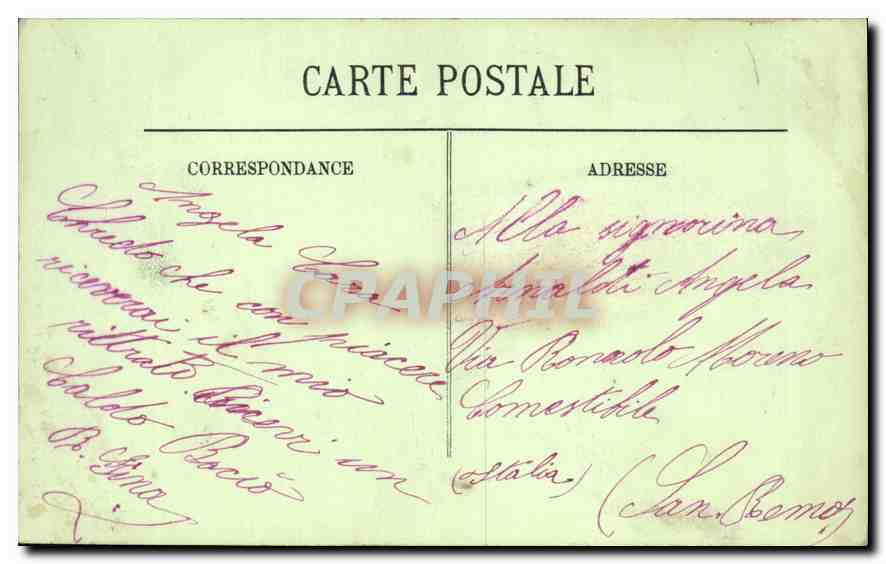 CARTE POSTALE
CORRESPONDANCE
Angela Cara
che con piacere
riceverai il mio
rittrato Ricevi un
Caldo Bacio
B. Gina
ADRESSE
Alla signorina
Arnaldi Angela
Via Moreno
Comestibile
(Italia)
(San. Remo)
CPAPHIL